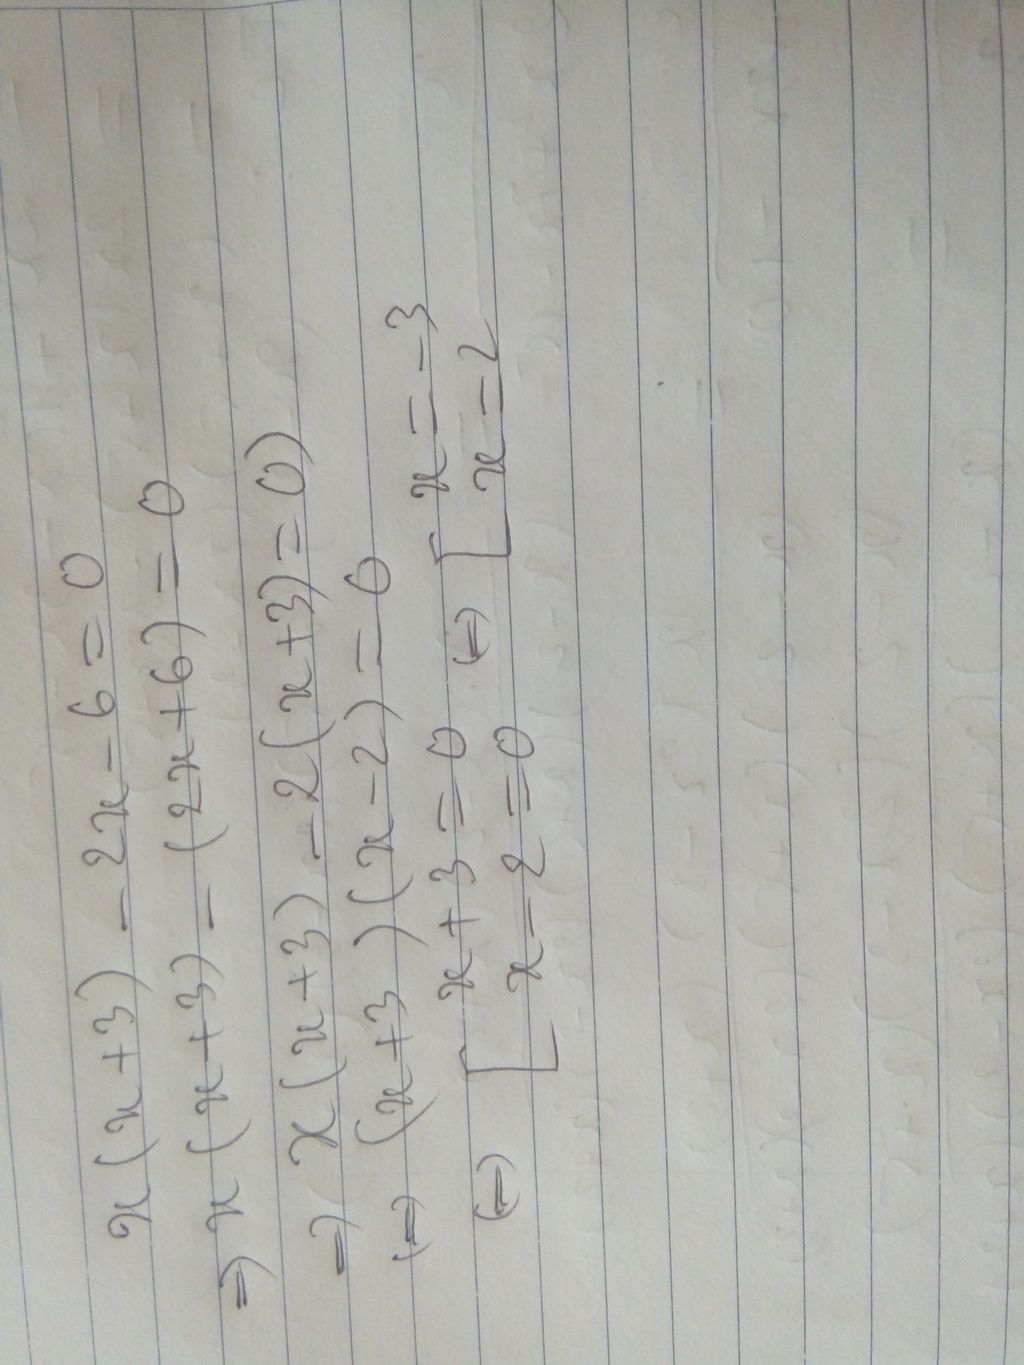 x(x+3) - 2x - 6 = 0
⇒ x(x+3) - (2x+6) = 0
⇒ x(x+3) - 2(x+3) = 0)
⇔ (x+3)(x-2) = 6
⇔ [ x+3 = 0 ⇔ [ x = -3
x - 2 = 0 x = 2